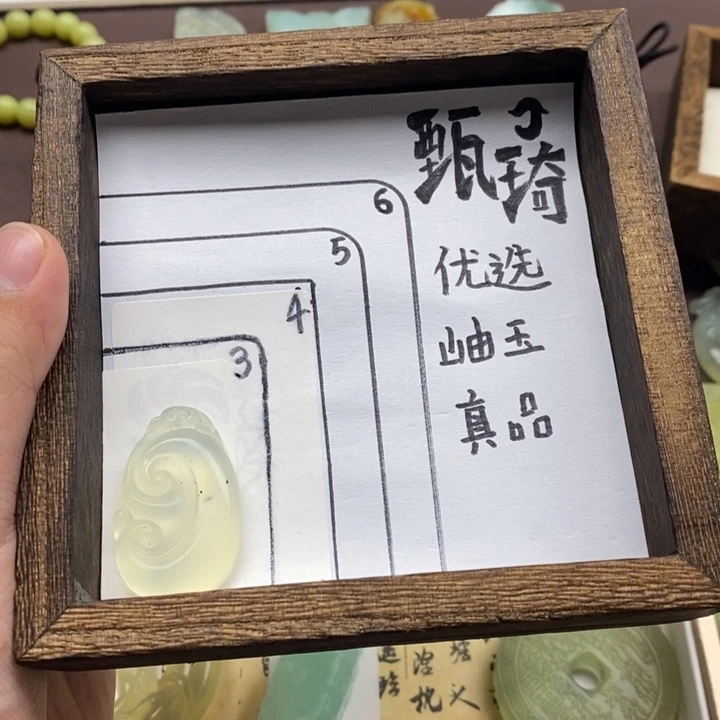 甄琦
6
5
优选
4
岫玉
3
真品